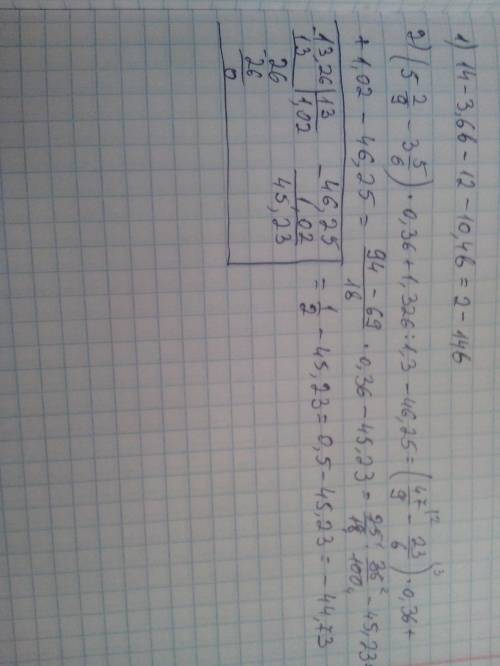 1) 14 - 3,66 - 12 - 10,46 = 2 - 146
2) (5 2/9 - 3 5/6) · 0,36 + 1,326 : 1,3 - 46,25 = (47/9 \2 - 23/6 \3) · 0,36 +
+ 1,02 - 46,25 = 94 - 69/18 · 0,36 - 45,23 = 25/18 · 36/100 - 45,23
= 1/2 - 45,23 = 0,5 - 45,23 = - 44,73
13,26 | 13
13 | 1,02
26
26
0
- 46,25
1,02
45,23